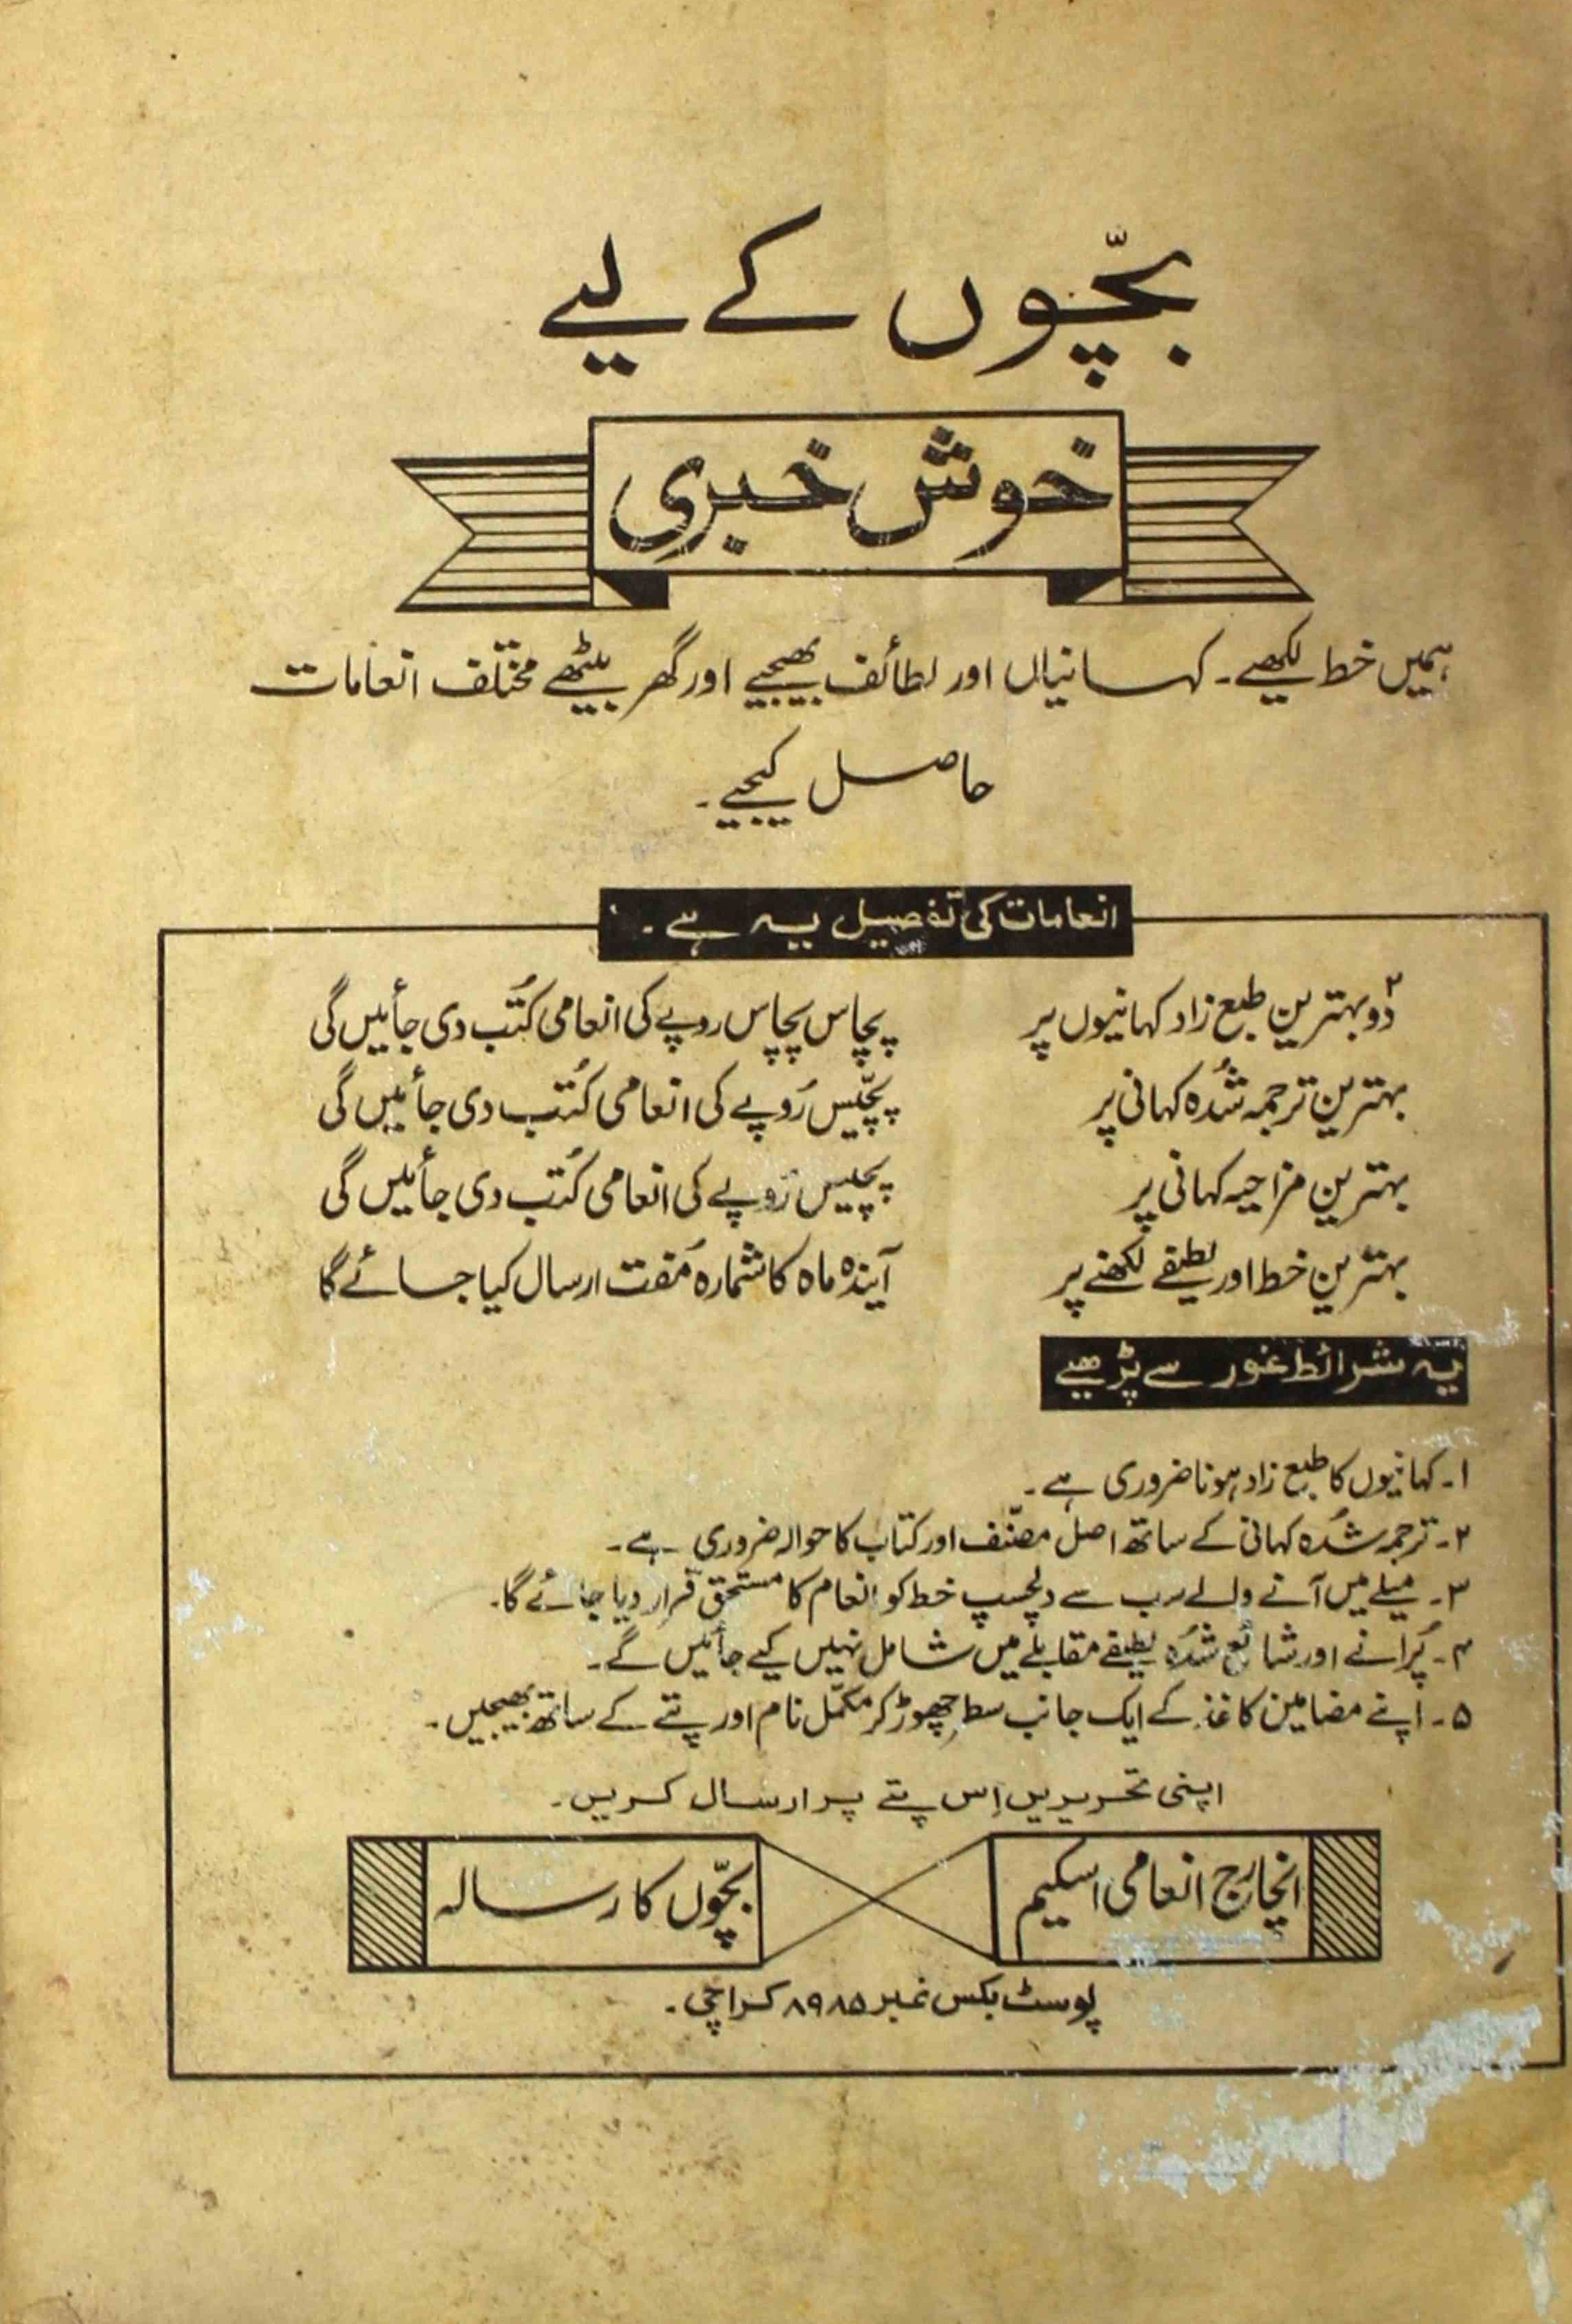 بچّوں کے لیے
خوش خبری
ہمیں خط لکھیے۔ کہانیاں اور لطائف بھیجیے اور گھر بیٹھے مختلف انعامات
حاصل کیجیے۔
انعامات کی تفصیل یہ ہے۔
۲ دو بہترین طبع زاد کہانیوں پر پچاس پچاس روپے کی انعامی کُتب دی جائیں گی
بہترین ترجمہ شُدہ کہانی پر پچّیس رُوپے کی انعامی کُتب دی جائیں گی
بہترین مزاحیہ کہانی پر پچیس رُوپے کی انعامی کُتب دی جائیں گی
بہترین خط اور لطیفے لکھنے پر آیندہ ماہ کا شمارہ مُفت ارسال کیا جائے گا
یہ شرائط غور سے پڑھیے
۱۔ کہانیوں کا طبع زاد ہونا ضروری ہے۔
۲۔ ترجمہ شدہ کہانی کے ساتھ اصل مصنّف اور کتاب کا حوالہ ضروری ہے۔
۳۔ میلے میں آنے والے سب سے دلچسپ خط کو انعام کا مستحق قرار دیا جائے گا۔
۴۔ پُرانے اور شائع شُدہ لطیفے مقابلے میں شامل نہیں کیے جائیں گے۔
۵۔ اپنے مضامین کاغذ کے ایک جانب سطر چھوڑ کر مکمّل نام اور پتے کے ساتھ بھیجیں۔
اپنی تحریریں اِس پتے پر ارسال کریں۔
انچارج انعامی اسکیم بچّوں کا رسالہ
پوسٹ بکس نمبر ۸۹۸۵ کراچی۔